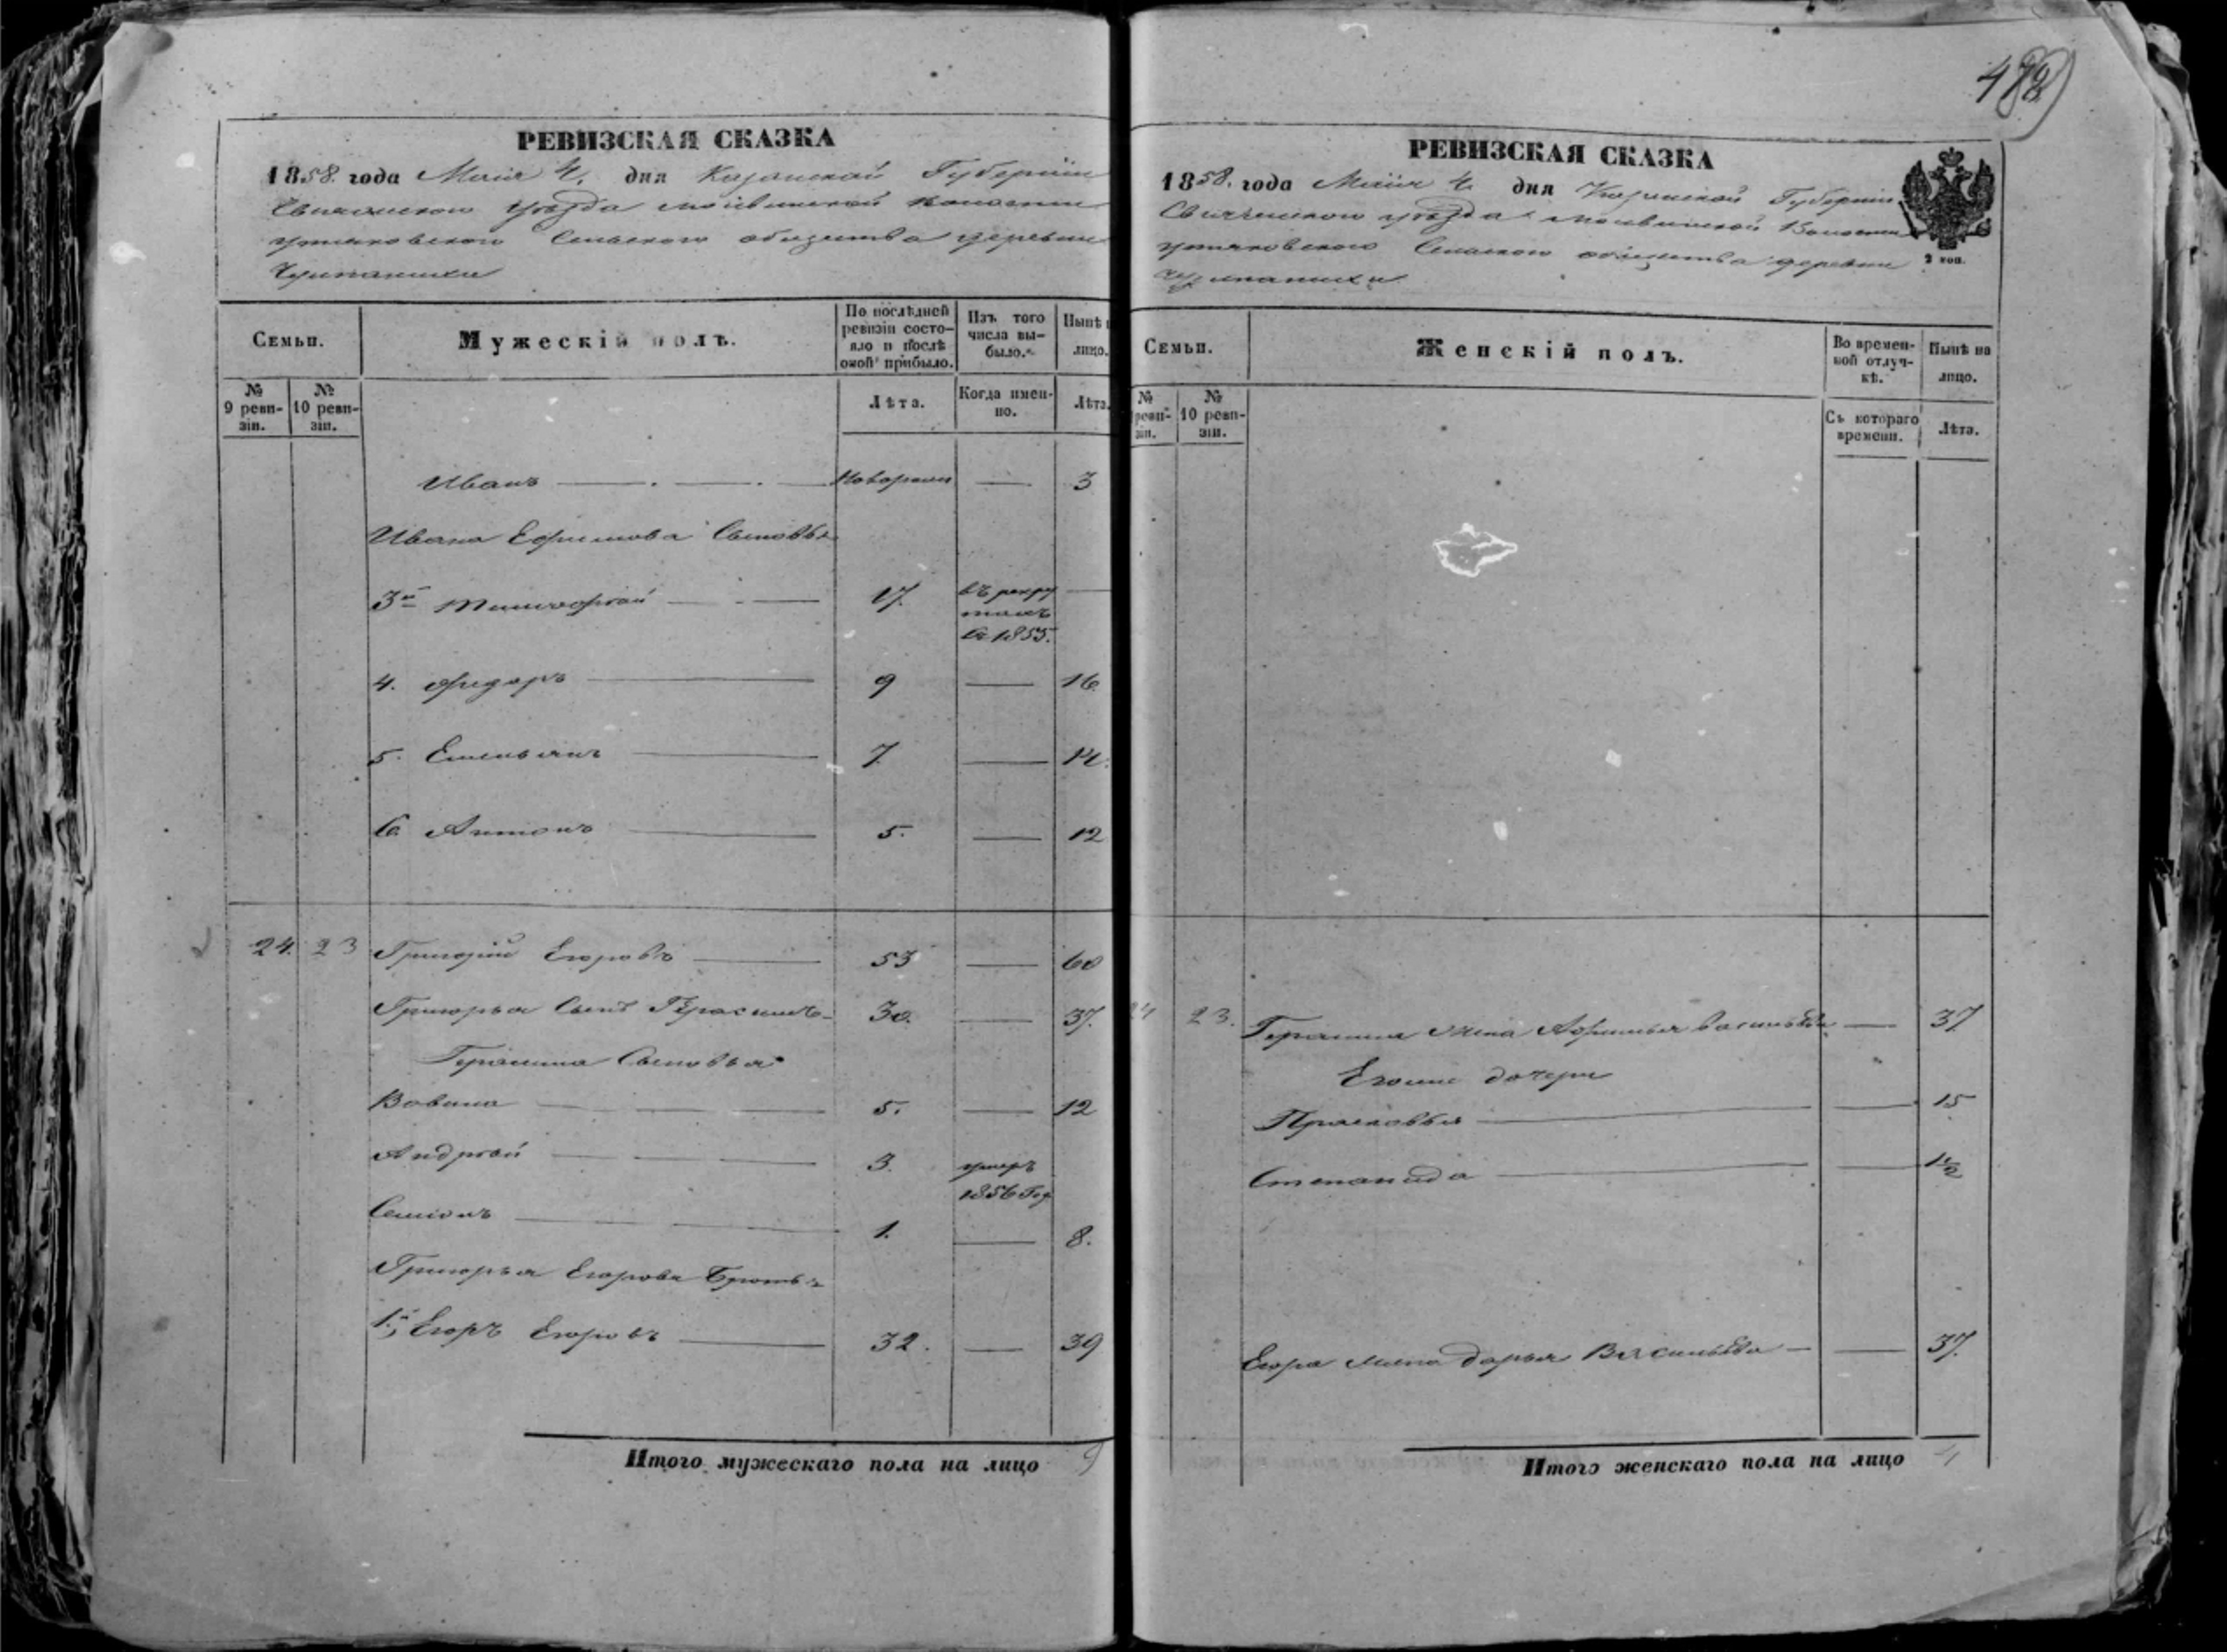 РЕВИЗСКАЯ СКАЗКА
1858. года Маія 4. дня Казанской Губерніи
уѣзда волости
Сельскаго общества деревни
Семьи.
Мужескій полъ.
По послѣдней ревизіи состо-
яло и послѣ
оной прибыло.
Изъ того
числа вы-
было.
Нынѣ
лицо.
№
9 реви-
зіи.
№
10 реви-
зіи.
Лѣта.
Когда имен-
но.
Лѣта.
Иванъ 3
Ивана Ефимова Сыновья
3й Тимофѣй 17. въ рекру
тахъ
съ 1855.
4. Федоръ 9 16.
5. Емельянъ 7 14.
6. Антонъ 5. 12
24. 23 Григорій Егоровъ 53 60
Григорья Сынъ Герасимъ 30. 37.
Герасима Сыновья
Вавила 5. 12
Андрѣй 3. умеръ
1856 Год
Семіонъ 1. 8.
Григорья Егорова Братья
1.й Егоръ Егоровъ 32. 39
Итого мужескаго пола на лицо 9
РЕВИЗСКАЯ СКАЗКА
1858. года Маія 4 дня Казанской Губерніи
уѣзда Волости
Сельскаго общества деревни
2 коп.
Семьи.
Женскій полъ.
Во времен-
ной отлуч-
кѣ.
Нынѣ на
лицо.
№
реви-
зіи.
№
10 реви-
зіи.
Съ котораго
времени.
Лѣта.
24 23. Герасима жена Васильева 37
Егоже дочери
Прасковья 15
Степанида 1/2
Егора жена Дарья Васильева 37.
Итого женскаго пола на лицо 4